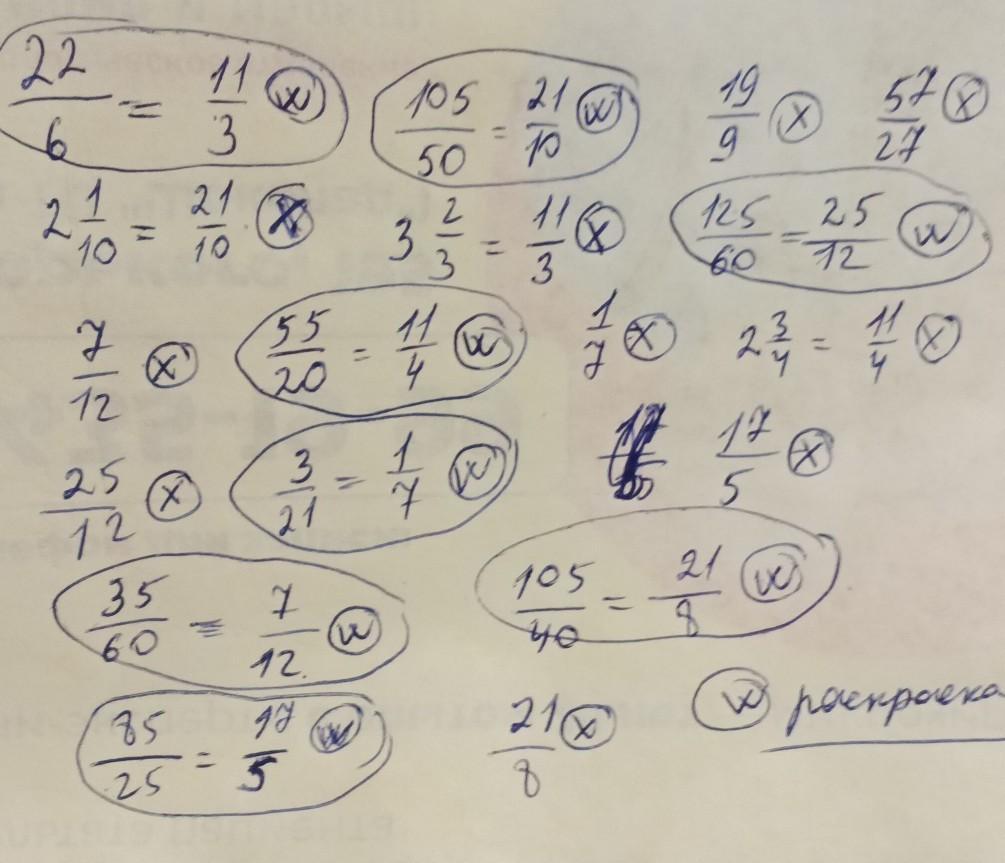 22/6 = 11/3 (w) 105/50 = 21/10 (w) 19/9 (x) 57/27 (x)
2 1/10 = 21/10 (x) 3 2/3 = 11/3 (x) 125/60 = 25/12 (w)
7/12 (x) 55/20 = 11/4 (w) 1/7 (x) 2 3/4 = 11/4 (x)
25/12 (x) 3/21 = 1/7 (w) 17/5 (x)
35/60 = 7/12 (w) 105/40 = 21/8 (w)
85/25 = 17/5 (w) 21/8 (x) (w) раскраска